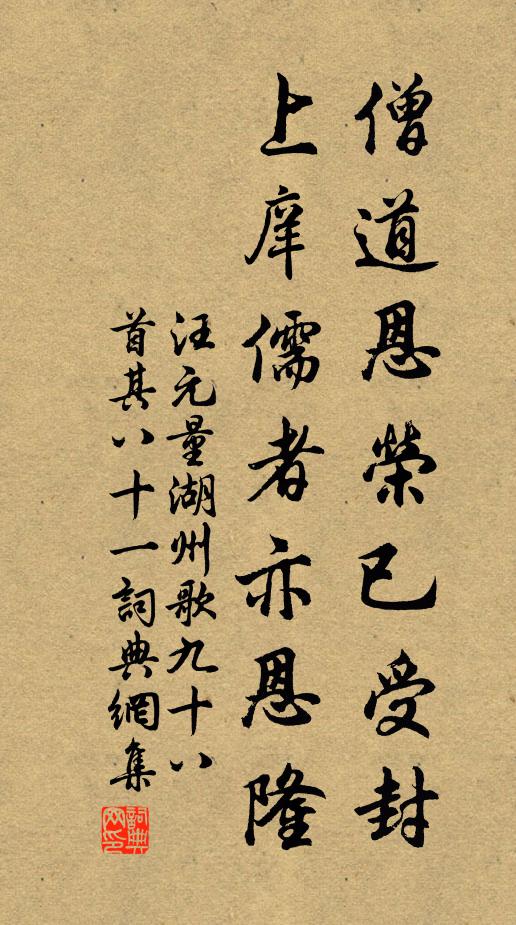 僧道恩榮已受封
上庠儒者亦恩隆
汪元量湖州歌九十八
首其八十一詞典網集
詞典網印